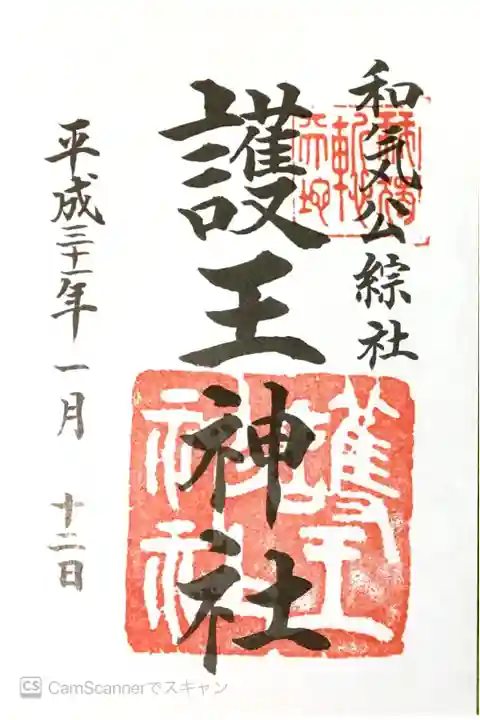 和氣公綜社
護王神社
平成三十一年 一月 十二日
護王神社
CS CamScannerでスキャン